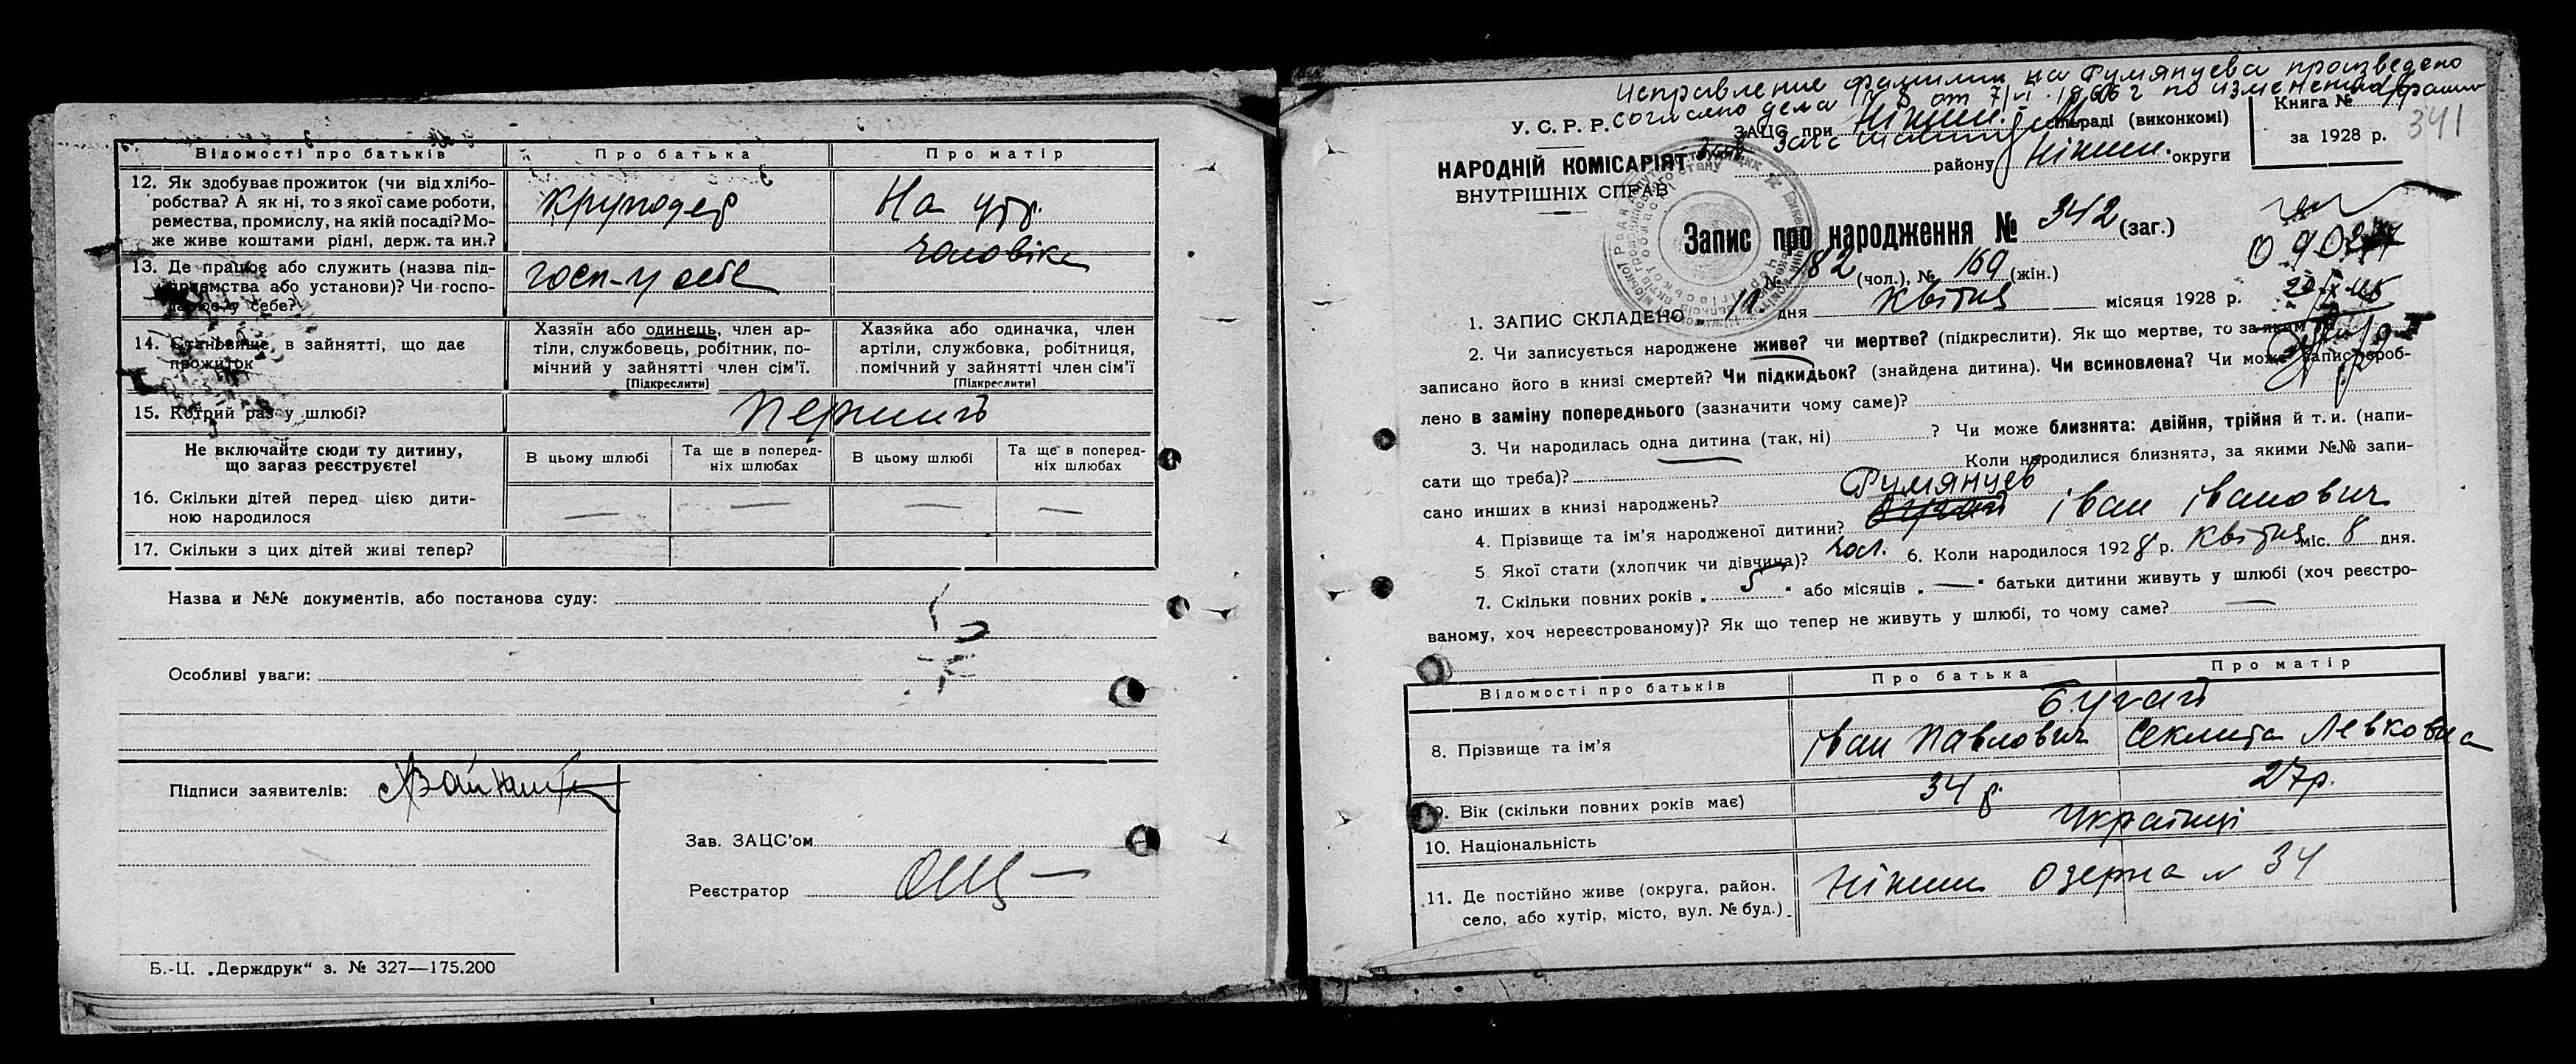 Відомості про батьків Про батька Про матір
12. Як здобуває прожиток (чи від хлібо-
робства? А як ні, то з якої саме роботи,
ремества, промислу, на якій посаді? Мо-
же живе коштами рідні, держ. та ин.?
На утр.
чоловіка
13. Де працює або служить (назва під-
приємства або установи)? Чи госпо-
дарює у себе?
госп-у себе
14. Становище, в зайнятті, що дає
прожиток
Хазяїн або одинець, член ар-
тіли, службовець, робітник, по-
мічний у зайнятті член сім'ї.
[Підкреслити]
Хазяйка або одиначка, член
артіли, службовка, робітниця,
помічний у зайнятті член сім'ї
[Підкреслити]
15. Котрий раз у шлюбі?
Не включайте сюди ту дитину,
що зараз реєструєте!
В цьому шлюбі
Та ще в поперед-
ніх шлюбах
В цьому шлюбі
Та ще в поперед-
ніх шлюбах
16. Скільки дітей перед цією дити-
ною народилося
— — — —
17. Скільки з цих дітей живі тепер?
Назва и №№ документів, або постанова суду:
Особливі уваги:
Підписи заявителів:
Зав. ЗАЦС'ом
Реєстратор
Б.-Ц. „Держдрук“ з. № 327—175.200
Исправление фамилии на Румянцева произведено
согласно дела № от 7/VI 1966 г по изменению фамил
У. С. Р. Р.
НАРОДНІЙ КОМІСАРІЯТ
ВНУТРІШНІХ СПРАВ
ЗАЦС при Ніжин. міськраді (виконкомі)
району Ніжин. округи
Книга №
за 1928 р.
341
Запис про народження № 342 (заг.)
№ 182 (чол.), № 160 (жін.)
1. ЗАПИС СКЛАДЕНО „ 12. дня квітня місяця 1928 р.
2. Чи записується народжене живе? чи мертве? (підкреслити). Як що мертве, то за яким
записано його в книзі смертей? Чи підкидьок? (знайдена дитина). Чи всиновлена? Чи може запис зроб-
лено в заміну попереднього (зазначити чому саме)?
3. Чи народилась одна дитина (так, ні) ? Чи може близнята: двійня, трійня й т. и. (напи-
сати що треба)? Коли народилися близнята, за якими №№ запи-
сано инших в книзі народжень?
Румянцев
4. Прізвище та ім'я народженої дитини? Бугай Іван Іванович
5 Якої стати (хлопчик чи дівчина)? чол. 6. Коли народилося 1928 р. квітня міс. 8 дня.
7. Скільки повних років „ 5 “ або місяців „ — “ батьки дитини живуть у шлюбі (хоч реєстро-
ваному, хоч нереєстрованому)? Як що тепер не живуть у шлюбі, то чому саме? —
Відомості про батьків Про батька Про матір
Бугай
8. Прізвище та ім'я Іван Павлович Секлита Левковна
9. Вік (скільки повних років має) 34 р. 27 р.
10. Національність Українці
11. Де постійно живе (округа, район,
село, або хутір, місто, вул. № буд.)
Ніжин Озерна № 34